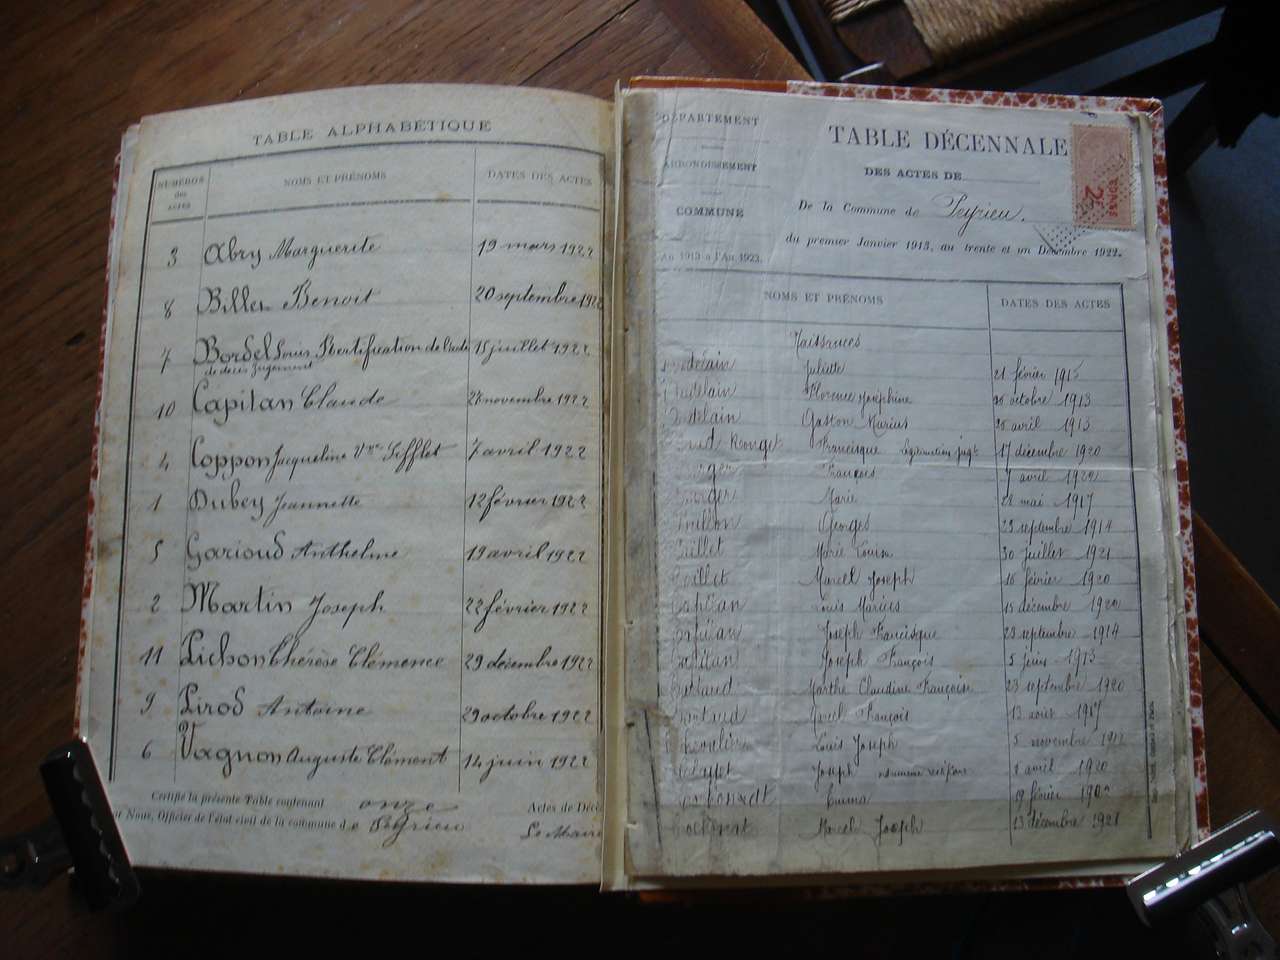 TABLE ALPHABÉTIQUE
NUMÉROS des ACTES NOMS ET PRÉNOMS DATES DES ACTES
3 Abry Marguerite 19 mars 1922
8 Billet Benoit 20 septembre 1922
7 Bordel Louis Rectification de l'acte 15 juillet 1922
de décès Jugement
10 Capitan Claude novembre 1922
4 Coppon Jacqueline Vve Sifflet 7 avril 1922
1 Dubey Jeannette 12 février 1922
5 Garioud Anthelme 19 avril 1922
2 Martin Joseph 22 février 1922
11 Pichon Thérèse Clémence 29 décembre 1922
9 Pirod Antoine 29 octobre 1922
6 Vagnon Auguste Clément 14 juin 1922
Certifié la présente Table contenant onze Actes de Déc
Nous, Officier de l'état civil de la commune de Peyrieu Le Maire
DÉPARTEMENT
ARRONDISSEMENT
COMMUNE
An 1913 à l'An 1923.
TABLE DÉCENNALE
DES ACTES DE
De la Commune de Peyrieu.
du premier Janvier 1913, au trente et un Décembre 1922.
NOMS ET PRÉNOMS DATES DES ACTES
Naissances
Juliette 21 février 1915
Florence Joséphine octobre 1913
Gaston Marius avril 1913
Francisque jugt 17 décembre 1920
François 7 avril 1920
Marie 22 mai 1917
Georges 23 septembre 1914
Marie Louise 30 juillet 1921
Marcel Joseph 16 février 1920
Capitan Louis Marius 15 décembre 1920
Capitan Joseph Francisque 23 septembre 1914
Capitan Joseph François 5 juin 1913
Marthe Claudine Françoise 23 septembre 1920
Marcel François 13 août 1917
Louis Joseph 5 novembre
Joseph avril 1920
Emma 19 février
Marcel Joseph 13 décembre 1921